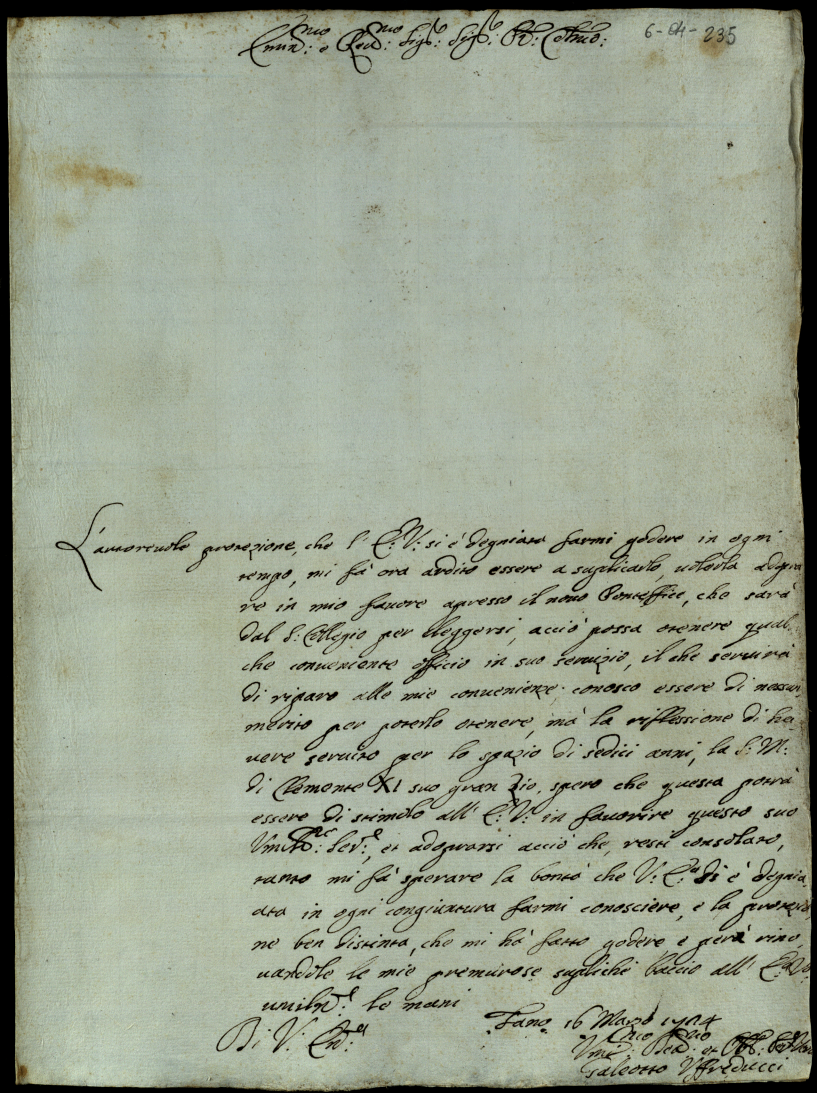 6-84-235
Emin:mo e Rev:mo Sig:r Sig:r P: Colmo:
L'autorevole protezione, che l' E: V: si è degniata farmi godere in ogni
tempo, mi fà ora ardito essere a suplicarlo, volerla adopra
re in mio favore apresso il novo Ponteffice, che sarà
dal S: Collegio per elleggersi, acciò possa otenere qual-
che conveniente officio in suo servizio, il che servirà
di riparo alle mie convenienze. conosco essere di nessun
merito per poterlo otenere, mà la riflessione di ha-
vere servito per lo spazio di sedici anni, la S: M:
di Clemente XI suo gran Zio, spero che questa potrà
essere di stimolo all' E: V: in favorire questo suo
Umil: Ser:e, et adoprarsi acciò che resti consolato,
tanto mi fà sperare la bontà che V: E:za si è degnia
ata in ogni congiuntura farmi conosciere, e la protezio
ne ben distinta, che mi hà fatto godere e però rino
vandole le mie premurose supliche baccio all' E: V:
umilm:e le mani
Fano 16 Marzo 1724
Di V: Em:a
Umil: Dev: et Obb:
Galeotto Uffreducci